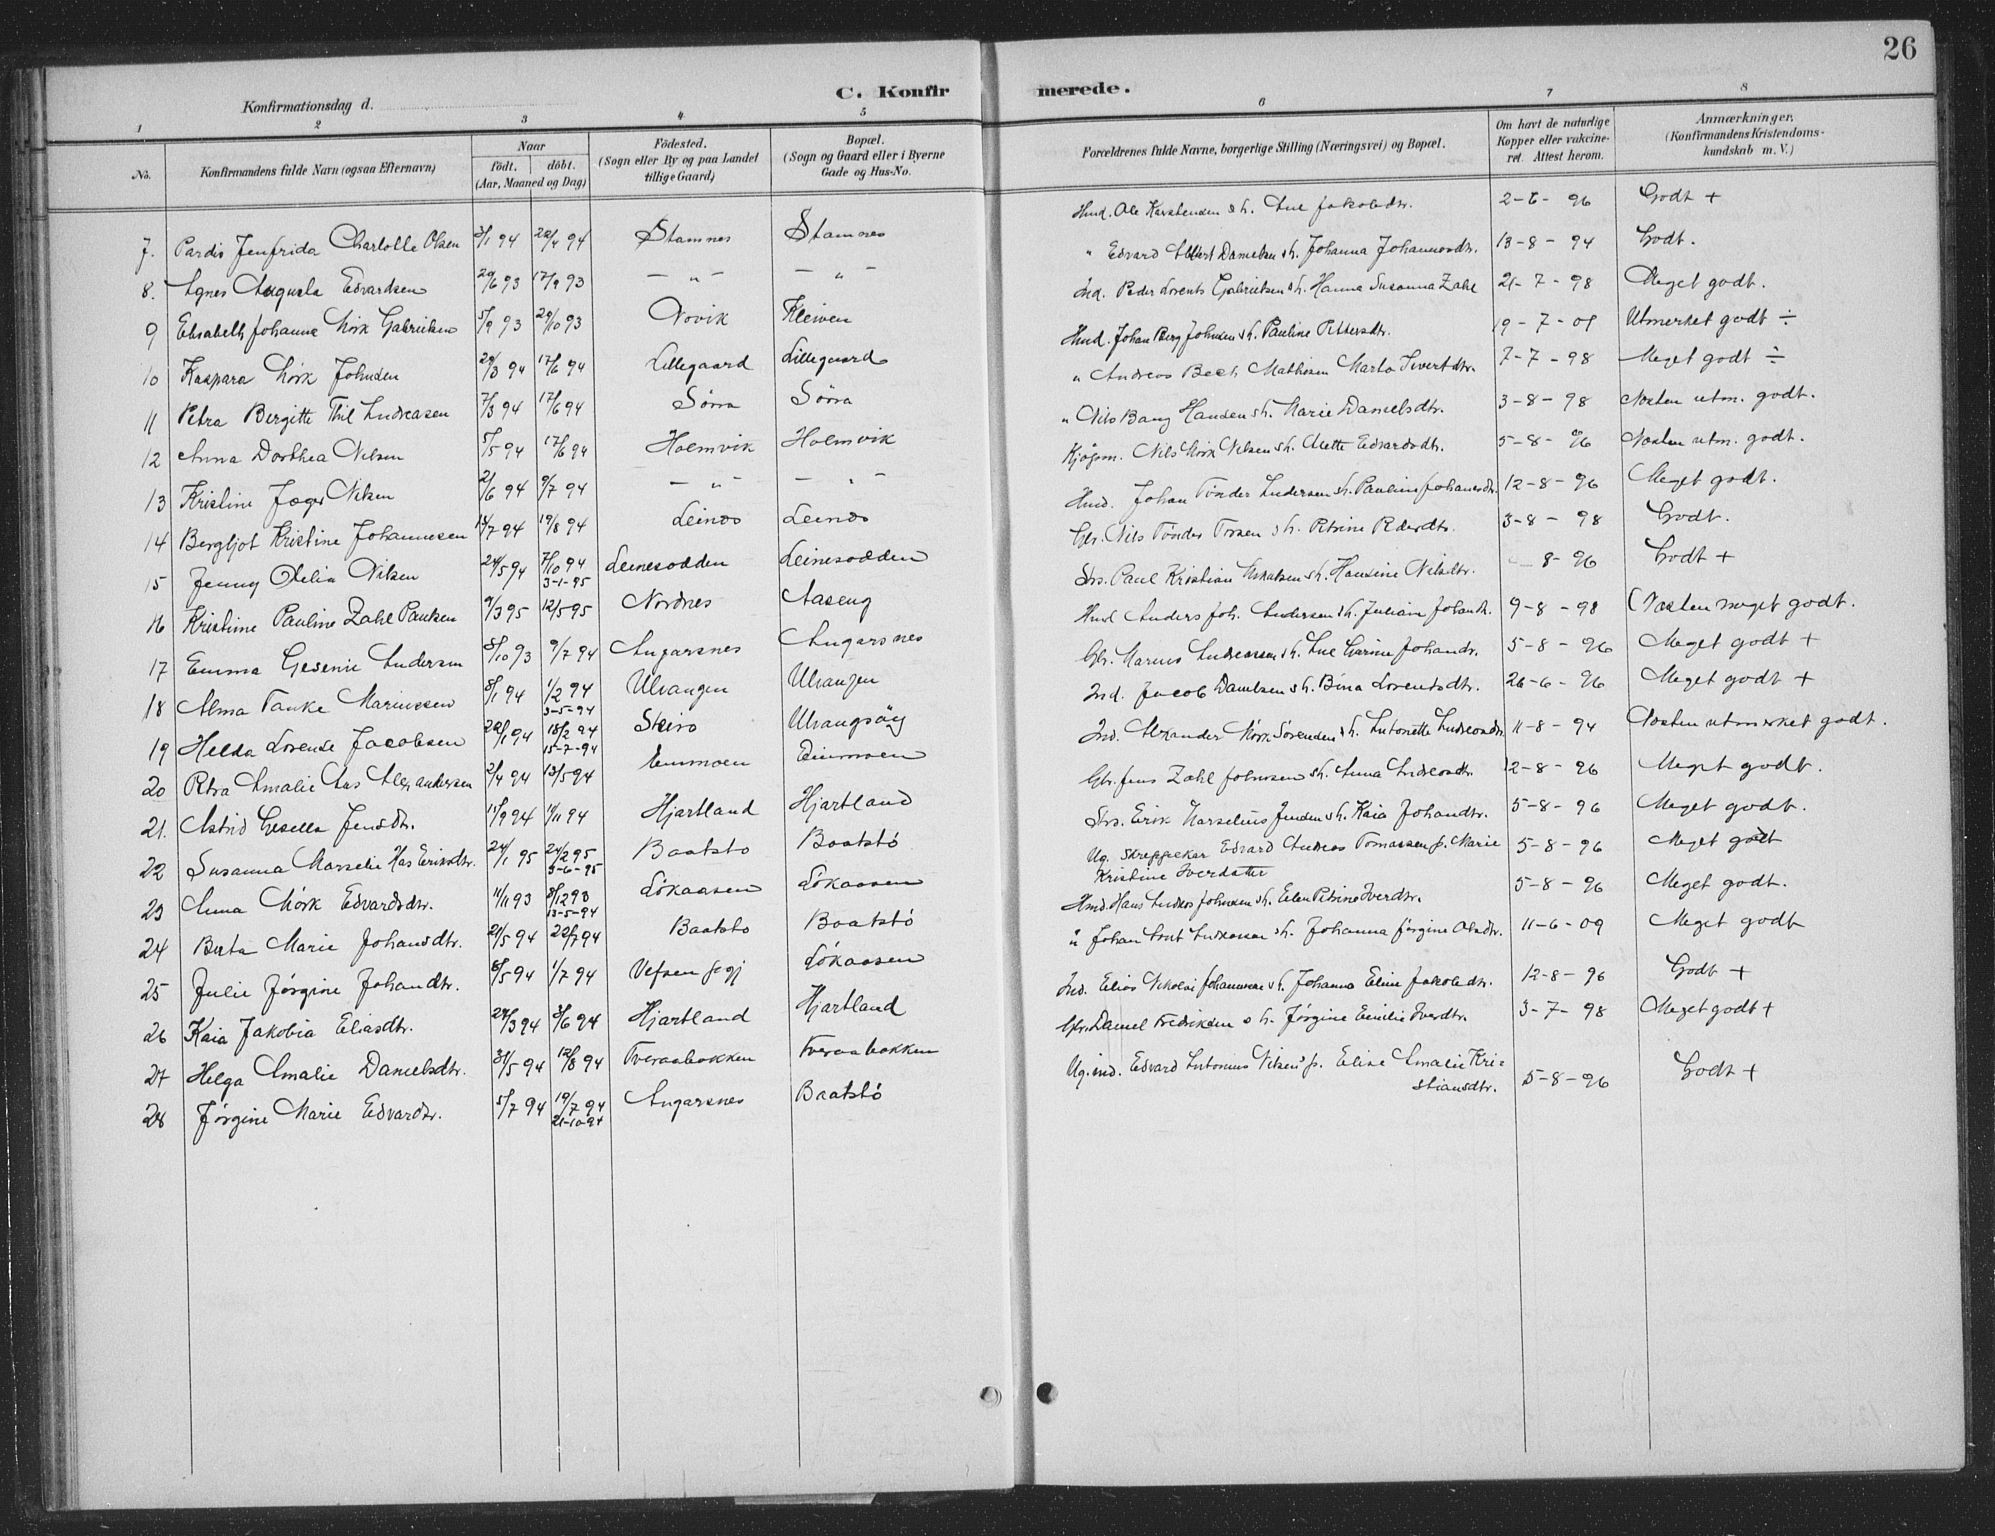 26
Konfirmationsdag d.
C. Konfir merede.
1 2 3 4 5 6 7 8
No.
Konfirmandens fulde Navn (ogsaa Efternavn)
Naar
födt. döbt.
(Aar, Maaned og Dag)
Födested.
(Sogn eller By og paa Landet
tillige Gaard)
Bopæl.
(Sogn og Gaard eller i Byerne
Gade og Hus-No.
Forældrenes fulde Navne, borgerlige Stilling (Næringsvei) og Bopæl.
Om havt de naturlige
Kopper eller vakcine-
ret. Attest herom.
Anmærkninger.
(Konfirmandens Kristendoms-
kundskab m. V.)
7. Pardis Jenfrida Charlotte Olsen 3/1 94 22/4 94 Stamnes Stamnes Hmd. Ole Karstensen o h. Ane Jakobsdtr. 2-6-96 Godt +
8. Agnes Augusta Edvardsen 29/6 93 17/9 93 — " — — " — " Edvard Albert Danielsen o h. Johanna Johannesdtr. 13-8-94 Godt.
9 Elisabeth Johanna Mörk Gabrielsen 5/9 93 29/10 93 Novik Kleiven Ind. Peder Lorents Gabrielsen o h. Hanna Susanna Zahl 21-7-98 Meget godt.
10 Kaspara Mörk Johnsen 29/3 94 17/6 94 Lillegaard Lillegaard Hmd. Johan Berg Johnsen o h. Pauline Pettersdtr. 19-7-01 Utmerket godt ÷
11 Petra Bergitte Thil Andreasen 7/3 94 17/6 94 Sörra Sörra " Andreas Bech Mathisen Marta Sivertdtr. 7-7-98 Meget godt ÷
12 Anna Dorthea Nilsen 5/5 94 17/6 94 Holmvik Holmvik " Nils Bang Hansen o h. Marie Danielsdtr. 3-8-98 Næsten utm. godt.
13 Kristine Jæger Nilsen 2/6 94 9/7 94 — " — — " — Kjöpm. Nils Mörk Nilsen o h. Alette Edvardsdtr. 5-8-96 Næsten utm. godt.
14 Bergljot Kristine Johannesen 13/7 94 19/8 94 Leines Leines Hmd. Johan Tönder Andersen o h. Pauline Johansdtr. 12-8-96 Meget godt.
15 Jenny Otelia Nilsen 24/5 94 7/10 94 3-1-95 Leinesodden Leinesodden Gbr. Nils Tönder Olsen o h. Petrine Pedersdtr. 3-8-98 Godt.
16 Kristine Pauline Zahl Paulsen 9/3 95 12/5 95 Nordnes Aaseng Strs. Paul Kristian Mikalsen o h. Hansine Nilsdtr. 8-96 Godt +
17 Emma Gesenie Andersen 8/10 93 9/7 94 Angarsnes Angarsnes Hmd Anders Joh. Andersen o h. Juliane Johansdtr. 9-8-98 Næsten meget godt.
18 Alma Tanke Mariussen 8/1 94 1/2 94 3-5-94 Ulvangen Ulvangen Gbr. Marius Andreassen o h. Ane Karine Johansdtr. 5-8-96 Meget godt +
19 Helda Lorense Jacobsen 22/1 94 18/2 94 15-7-94 Skeiro Ulvangsöy Ind. Jacob Danielsen o h. Bina Lorentsdtr. 26-6-96 Meget godt +
20 Petra Amalie Aas Alexandersen 2/4 94 13/5 94 Einmoen Einmoen Ind. Alexander Mörk Sörensen o h. Antonette Andreasdtr 11-8-94 Næsten utmerket godt.
21. Astrid Gesella Jensdtr. 11/9 94 11/11 94 Hjartland Hjartland Gbr. Jens Zahl Johnsen o h. Anna Andreasdtr. 12-8-96 Meget godt.
22 Susanna Marselie Has Eriksdtr. 24/1 95 24/2 95 3-6-95 Baatstö Baatstö Strs. Erik Marselius Jensen o h. Kaia Johansdtr. 5-8-96 Meget godt.
23 Anna Mörk Edvardsdtr. 11/11 93 8/12 93 13-5-94 Lökaasen Lökaasen Ug. Skreppekar Edvard Andreas Tomassen p. Marie Kristine Iverdatter 5-8-96 Meget godt
24 Berta Marie Johansdtr. 21/5 94 22/7 94 Baatstö Baatstö Hmd. Hans Andreas Johnsen o h. Elen Petrine Iversdtr. 5-8-96 Meget godt.
25 Julie Jörgine Johansdtr. 8/5 94 1/7 94 Vefsen pgj Lökaasen " Johan Andreassen o h. Johanna Jörgine Olsdtr. 11-6-09 Meget godt
26 Kaia Jakobia Eliasdtr. 24/3 94 3/6 94 Hjartland Hjartland Ind. Elias Nikolai Johannesen o h. Johanna Eline Jakobsdtr. 12-8-96 Godt +
27 Helga Amalie Danielsdtr. 31/5 94 12/8 94 Tveraabakken Tveraabakken Gbr. Daniel Fredriksen o h. Jörgine Emilie Iversdtr. 3-7-98 Meget godt +
28 Jörgine Marie Edvardsdtr. 5/7 94 19/7 94 21-10-94 Angarsnes Baatstö Ug. ind. Edvard Antonius Nilsen p. Elise Amalie Kri-
stiansdtr. 5-8-96 Godt +